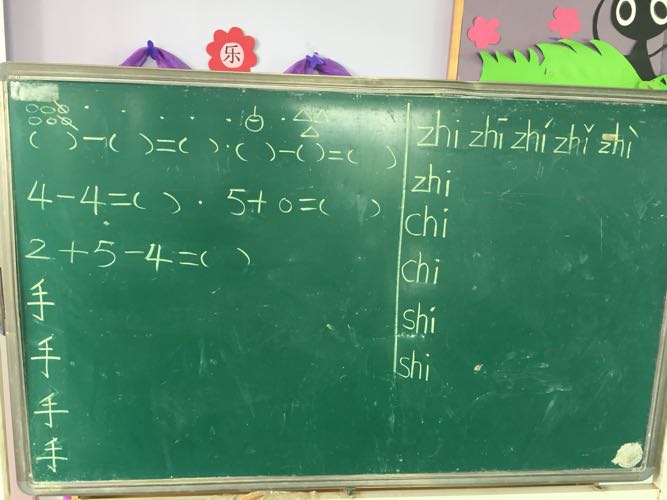 乐
( )-( )=( ).( )-( )=( )
4-4=( ). 5+0=( )
2+5-4=( )
手
手
手
手
zhi zhī zhí zhǐ zhì
zhi
chi
chi
shi
shi